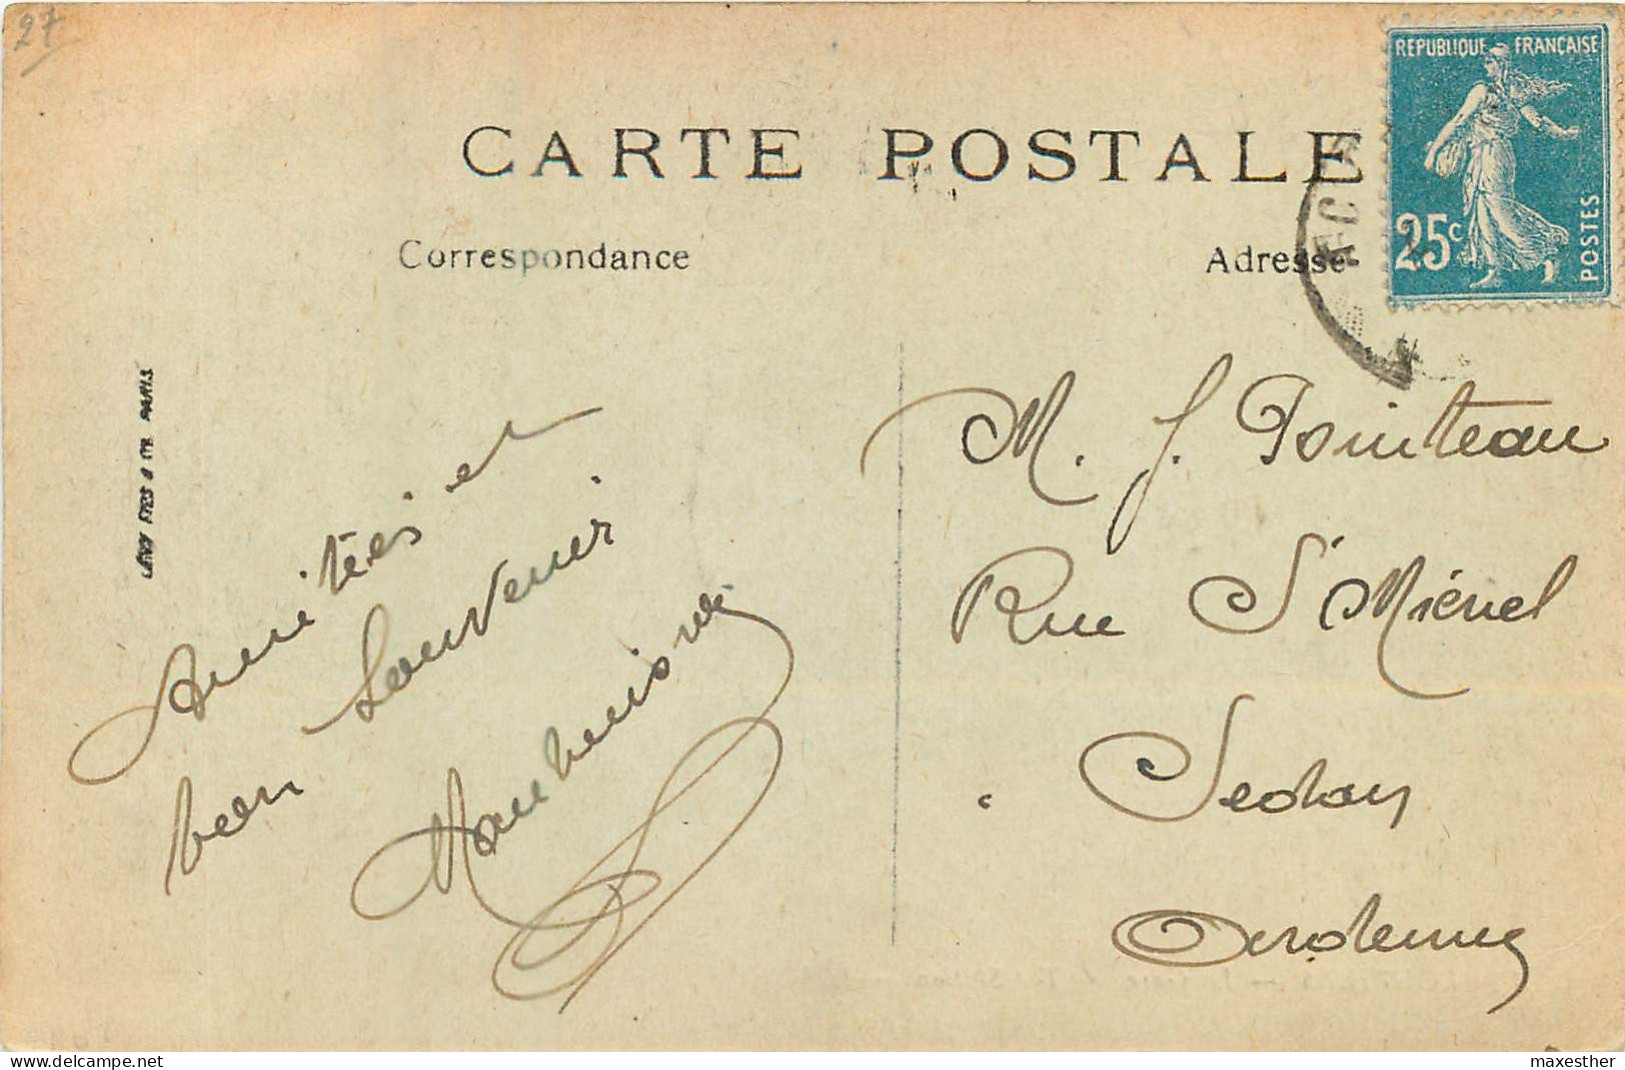 27
CARTE POSTALE
Correspondance
Adresse
REPUBLIQUE FRANÇAISE
25c
POSTES
LÉVY FILS & Cie PARIS
Amitiés et
bon Souvenir
M. J. Pointeau
Rue St Michel
Sedan
Ardennes
maxesther